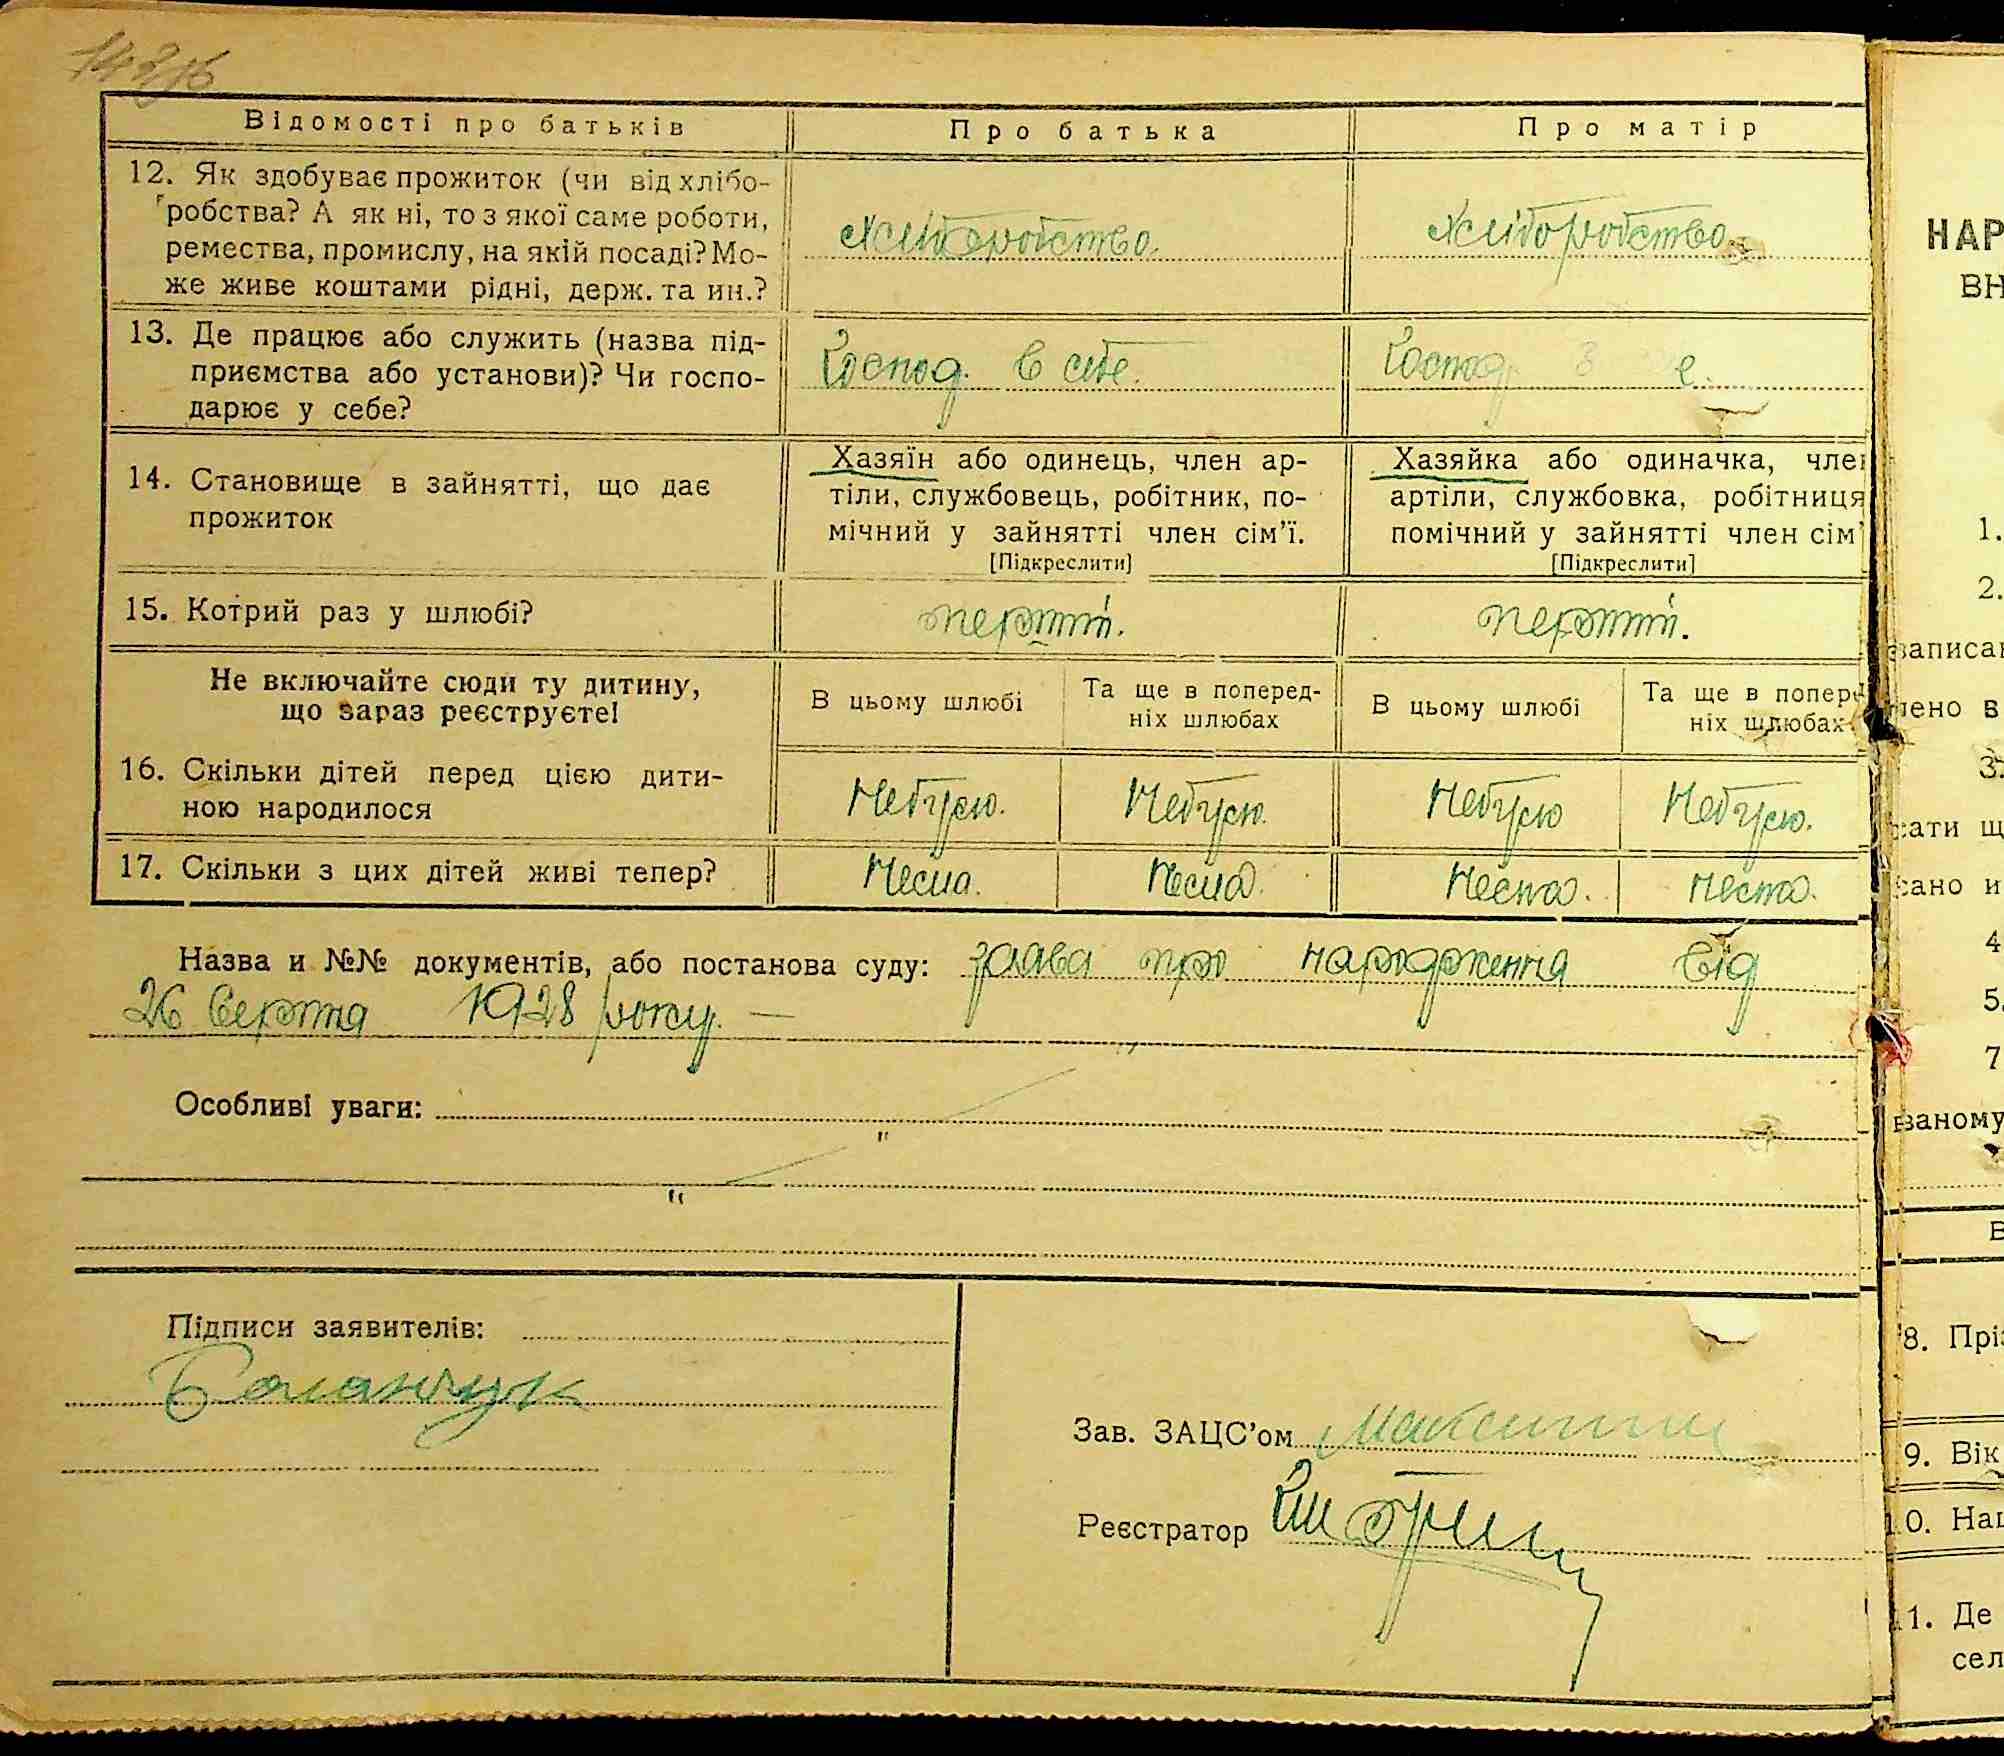 Відомості про батьків
Про батька
Про матір
12. Як здобуває прожиток (чи від хлібо-
робства? А як ні, то з якої саме роботи,
ремества, промислу, на якій посаді? Мо-
же живе коштами рідні, держ. та ин.?
хліборобство.
хліборобство.
13. Де працює або служить (назва під-
приємства або установи)? Чи госпо-
дарює у себе?
Господ. в себе.
Господ.
14. Становище в зайнятті, що дає
прожиток
Хазяїн або одинець, член ар-
тіли, службовець, робітник, по-
мічний у зайнятті член сім'ї.
[Підкреслити]
Хазяйка або одиначка, член
артіли, службовка, робітниця
помічний у зайнятті член сім'
[Підкреслити]
15. Котрий раз у шлюбі?
перший.
перший.
Не включайте сюди ту дитину,
що зараз реєструєте!
В цьому шлюбі
Та ще в поперед-
ніх шлюбах
В цьому шлюбі
Та ще в поперед
ніх шлюбах
16. Скільки дітей перед цією дити-
ною народилося
Небуло.
Небуло.
Небуло
Небуло.
17. Скільки з цих дітей живі тепер?
Нема.
Нема.
Нема.
Нема.
Назва и №№ документів, або постанова суду: заява про народження від
26 Серпня 1928 року. —
Особливі уваги:
"
"
Підписи заявителів:
Баланчук
Зав. ЗАЦС'ом
Реєстратор
НАР
ВН
1.
2.
записан
лено в
3.
сати щ
сано и
4
5.
7
ваному
В
8. Прі
9. Вік
10. Нац
11. Де
сел